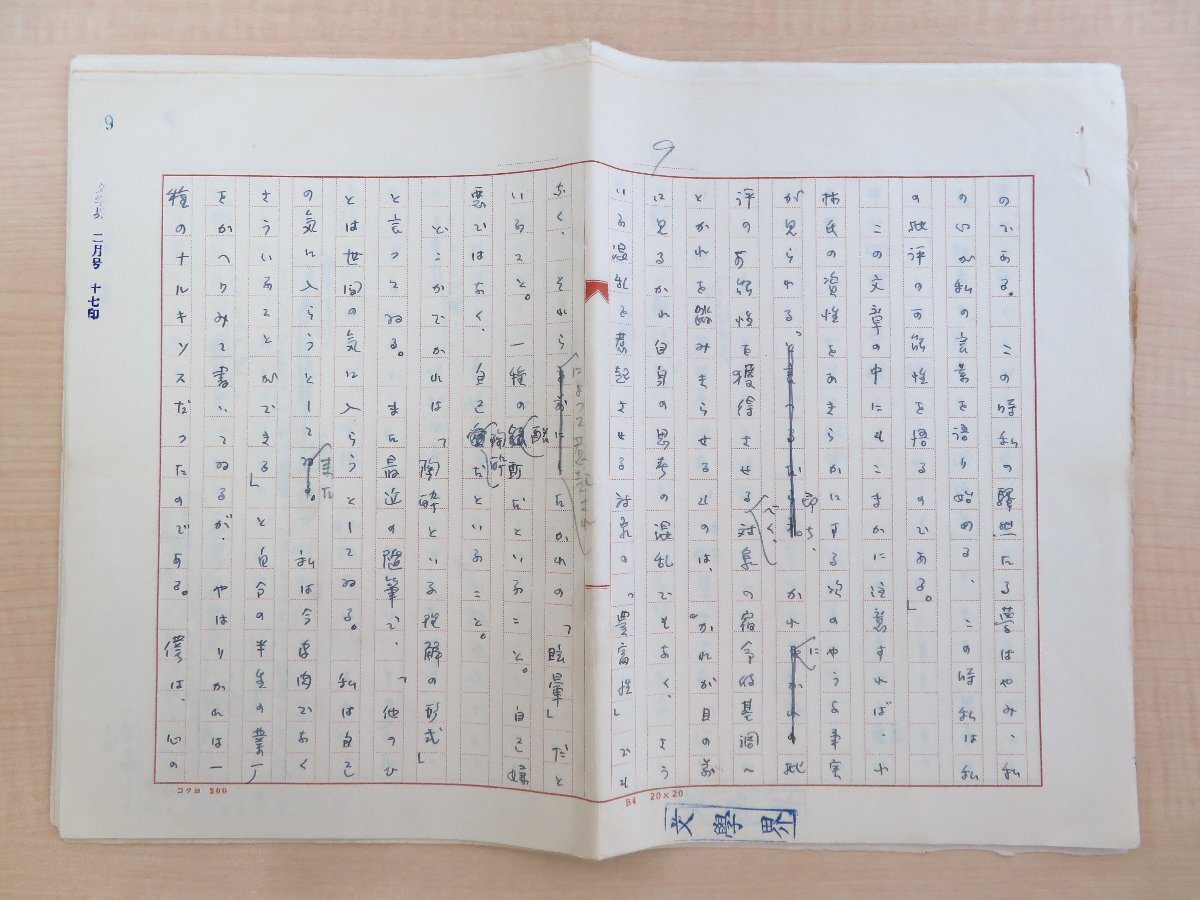 9
のである。この時私の騒然たる夢はやみ、私
の心が私の言葉を語り始める、この時私は私
の批評の可能性を悟るのである。」
この文章の中にもこまかに注意すれば、小
林氏の資性をあきらかにする次のやうな事実
が見られる。即ち、かれに批
評の可能性を獲得させるべく、対象の宿命的基調へ
とかれを臨みきらせるものは、かれが目の前
に見るかれ自身の思考の混乱でもなく、さう
いふ混乱を惹起させる対象の「豊富性」でも
なく、それらによつて惹起されたかれの「眩暈」だと
いふこと。一種の酩酊だといふこと。自己嫌
悪ではなく、自己陶酔だといふこと。
どこかでかれは「陶酔といふ理解の形式」
と言つてゐる。また最近の随筆で、「他のひ
とは世間の気に入らうとしてゐる。私は自己
の気に入らうとしてゐた。私は今皮肉でなく
さういふことができる」と自分の半生の業
をかへりみて書いてゐるが、やはりかれは一
種のナルキソスだつたのである。僕は、心の
コクヨ 200
B4 20×20
文學界
9
文学界 二月号 十七印